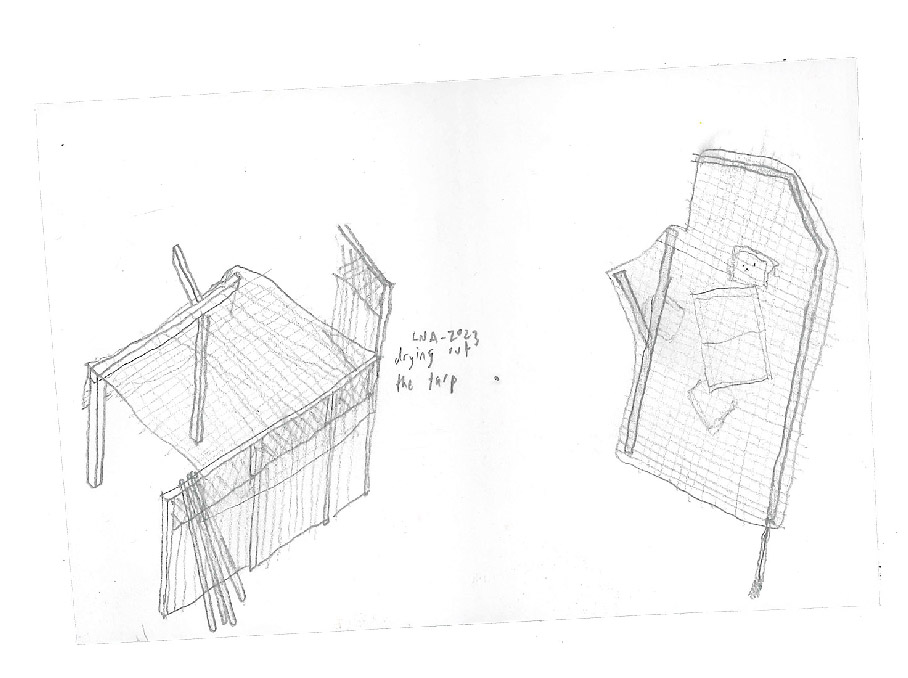 LNA-2023
drying out
the tarp